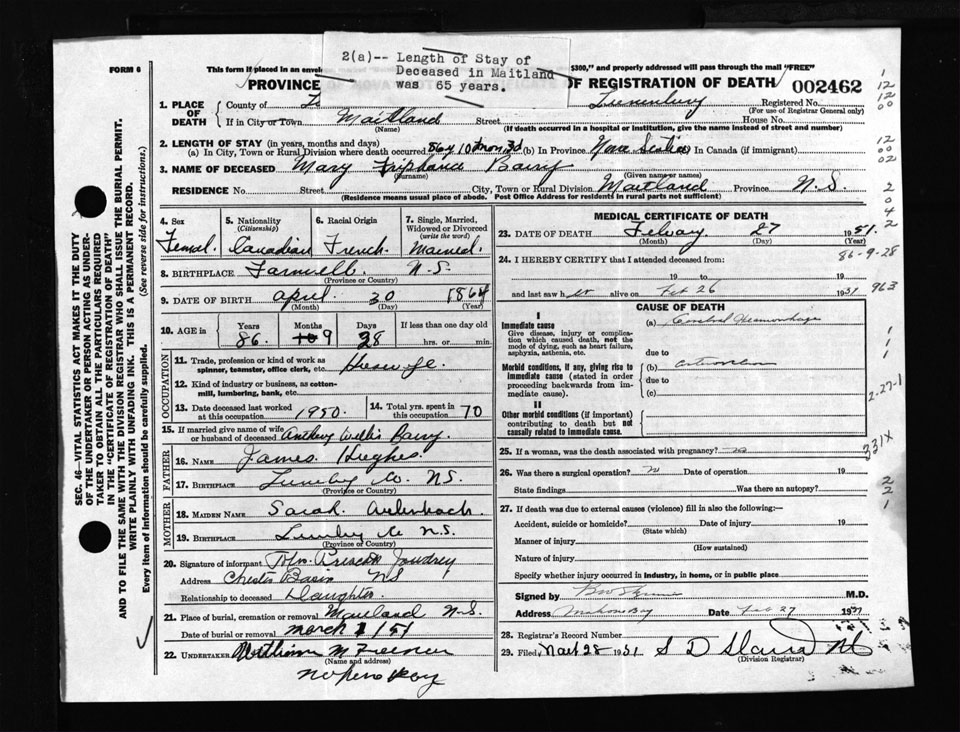 2(a)-- Length of Stay of
Deceased in Maitland
was 65 years.
FORM 6
This form if placed in an envel
$300," and properly addressed will pass through the mail "FREE"
PROVINCE
OF REGISTRATION OF DEATH
002462
1. PLACE OF DEATH
County of
Lunenburg
Registered No.
(For use of Registrar General only)
If in City or Town Maitland Street House No.
(Name) (If death occurred in a hospital or institution, give the name instead of street and number)
2. LENGTH OF STAY (in years, months and days)
(a) In City, Town or Rural Division where death occurred 86y 10mon 3d (b) In Province Nova Scotia (c) In Canada (if immigrant)
3. NAME OF DECEASED Mary Barry
(Surname) (Given name or names)
RESIDENCE No. Street City, Town or Rural Division Maitland Province N.S.
(Residence means usual place of abode. Post Office Address for residents in rural parts not sufficient)
4. Sex
Femal.
5. Nationality
(Citizenship)
Canadian
6. Racial Origin
French.
7. Single, Married, Widowed or Divorced
(write the word)
Married.
8. BIRTHPLACE N.S.
(Province or Country)
9. DATE OF BIRTH april. 30 1864
(Month) (Day) (Year)
10. AGE in
Years
86.
Months
10 9
Days
28
If less than one day old
hrs. or min.
OCCUPATION
11. Trade, profession or kind of work as
spinner, teamster, office clerk, etc.
12. Kind of industry or business, as cotton-
mill, lumbering, bank, etc.
13. Date deceased last worked
at this occupation 1950.
14. Total yrs. spent in
this occupation 70
15. If married give name of wife
or husband of deceased Anthony Willis Barry
FATHER
16. NAME James. Hughes.
17. BIRTHPLACE Lunby Co. N.S.
(Province or Country)
MOTHER
18. MAIDEN NAME Sarah
19. BIRTHPLACE Lunby Co N.S.
(Province or Country)
20. Signature of informant Mrs. Prescott Joudrey
Address Chester Basin NS
Relationship to deceased Daughter.
21. Place of burial, cremation or removal Maitland N.S.
Date of burial or removal march 1/51
22. UNDERTAKER William M
(Name and address)
MEDICAL CERTIFICATE OF DEATH
23. DATE OF DEATH 27 1951.
(Month) (Day) (Year)
24. I HEREBY CERTIFY that I attended deceased from:
19 to 19
and last saw her alive on Feb 26 1951
CAUSE OF DEATH
I
Immediate cause
Give disease, injury or complica-
tion which caused death, not the
mode of dying, such as heart failure,
asphyxia, asthenia, etc.
(a) Cerebral Haemorrhage
due to
Morbid conditions, if any, giving rise to
immediate cause (stated in order
proceeding backwards from im-
mediate cause).
(b)
due to
(c)
II
Other morbid conditions (if important)
contributing to death but not
causally related to immediate cause.
25. If a woman, was the death associated with pregnancy? no
26. Was there a surgical operation? n Date of operation 19
State findings Was there an autopsy?
27. If death was due to external causes (violence) fill in also the following:—
Accident, suicide or homicide? Date of injury 19
(State which)
Manner of injury
(How sustained)
Nature of injury
Specify whether injury occurred in industry, in home, or in public place
Signed by M.D.
Address Mahone Bay Date Feb 27 1951
28. Registrar's Record Number
29. Filed 28 1951 S D
(Division Registrar)
SEC. 46—VITAL STATISTICS ACT MAKES IT THE DUTY
OF THE UNDERTAKER OR PERSON ACTING AS UNDER-
TAKER TO OBTAIN ALL THE PARTICULARS REQUIRED
IN THE "CERTIFICATE OF REGISTRATION OF DEATH"
AND TO FILE THE SAME WITH THE DIVISION REGISTRAR WHO SHALL ISSUE THE BURIAL PERMIT.
WRITE PLAINLY WITH UNFADING INK. THIS IS A PERMANENT RECORD.
Every item of information should be carefully supplied. (See reverse side for instructions.)
1
12
12
00
12
00
02
2
0
4
2
86-9-28
963
1
1
1
2-27-1
331X
2
2
1